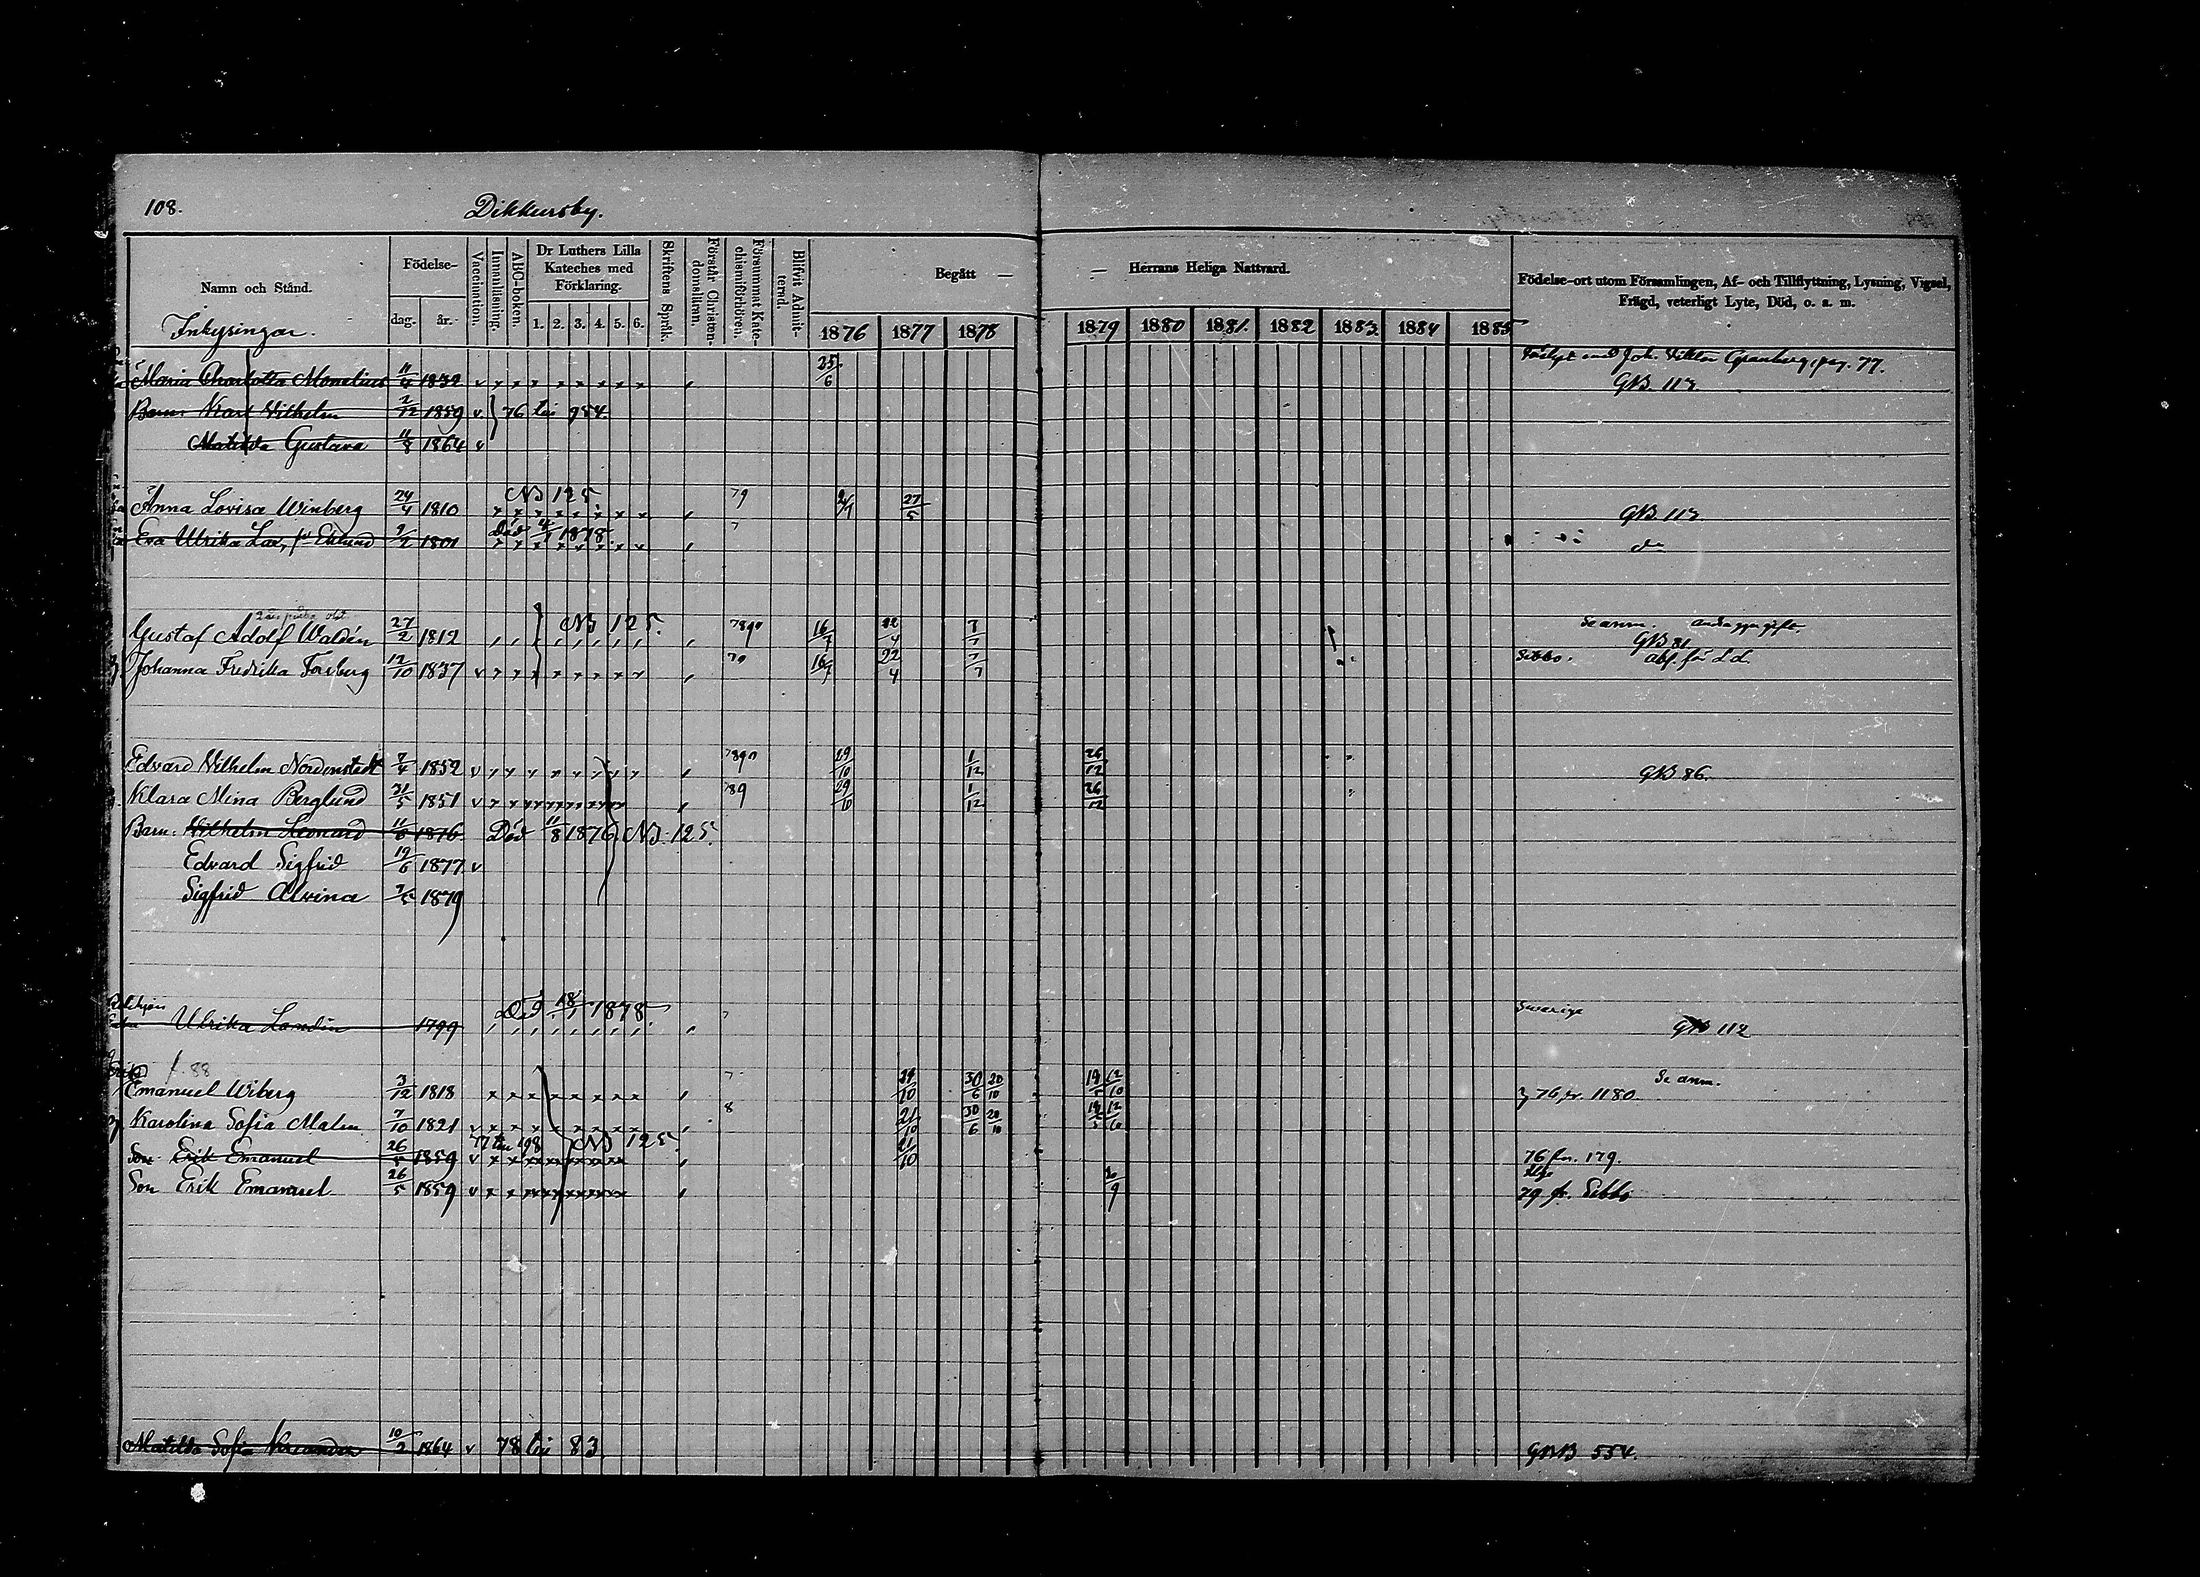 108.
Dikkursby.
Namn och Stånd.
Födelse-
dag.
år.
Vaccination.
Innanläsning.
ABC-boken.
Dr Luthers Lilla Kateches med Förklaring.
1. 2. 3. 4. 5. 6.
Skriftens Språk.
Förstår Christendomslärun.
Försummat Katechismiförhören.
Blifvit Admitterad.
Begått — — Herrans Heliga Nattvard.
1876 1877 1878 1879 1880 1881. 1882 1883. 1884 1885
Födelse-ort utom Församlingen, Af- och Tillflyttning, Lysning, Vigsel,
Frägd, veterligt Lyte, Död, o. s. m.
Inhysingar.
Maria Charlotta Monelius 11/4 1832 v 25/6 Joh. Viktor Granberg, pag. 77.
GB. 113.
Barn: Karl Vilhelm 2/12 1859 v 76 till 954.
Matilda Gustava 11/8 1864 v
NB 125
Anna Lovisa Winberg 24/4 1810 79 27/5 GB. 113.
Eva Ulrika Lax, f. Eklund 1801 Död 1878. 7 do
Gustaf Adolf Waldén 27/2 1812 NB 125. 7890 16/7 22/4 7/7 Se anm.
GB 81
Johanna Fredrika Forsberg 12/10 1837 v 79 16/7 22/4 7/7 Sibbo.
Edvard Vilhelm Nordenstedt 7/4 1852 v 7890 29/10 1/12 26/12 GB 86.
Klara Mina Berglund 31/5 1851 v 789 29/10 1/12 26/12
Barn: Vilhelm Leonard 11/6 1876 Död 11/8 1876 NB. 125.
Edvard Sigfrid 19/6 1877 v
Sigfrid Alvina 7/5 1879
Ulrika Landin 1799 Död 18/1 1878 7 Sverige GB 112
f. 88
Emanuel Wiberg 3/12 1818 7 30/6 20/10 Se anm.
76 fr. 1180
Karolina Sofia Malm 7/10 1821 8 21/10 30/6 20/10
77 till 198 NB 125.
Son Erik Emanuel 26/5 1859 v 21/10 76 fr. 179.
Son Erik Emanuel 26/5 1859 v 79 fr. Sibbo
Matilda Sofia 10/2 1864 v 78 till 83 GBB 554.